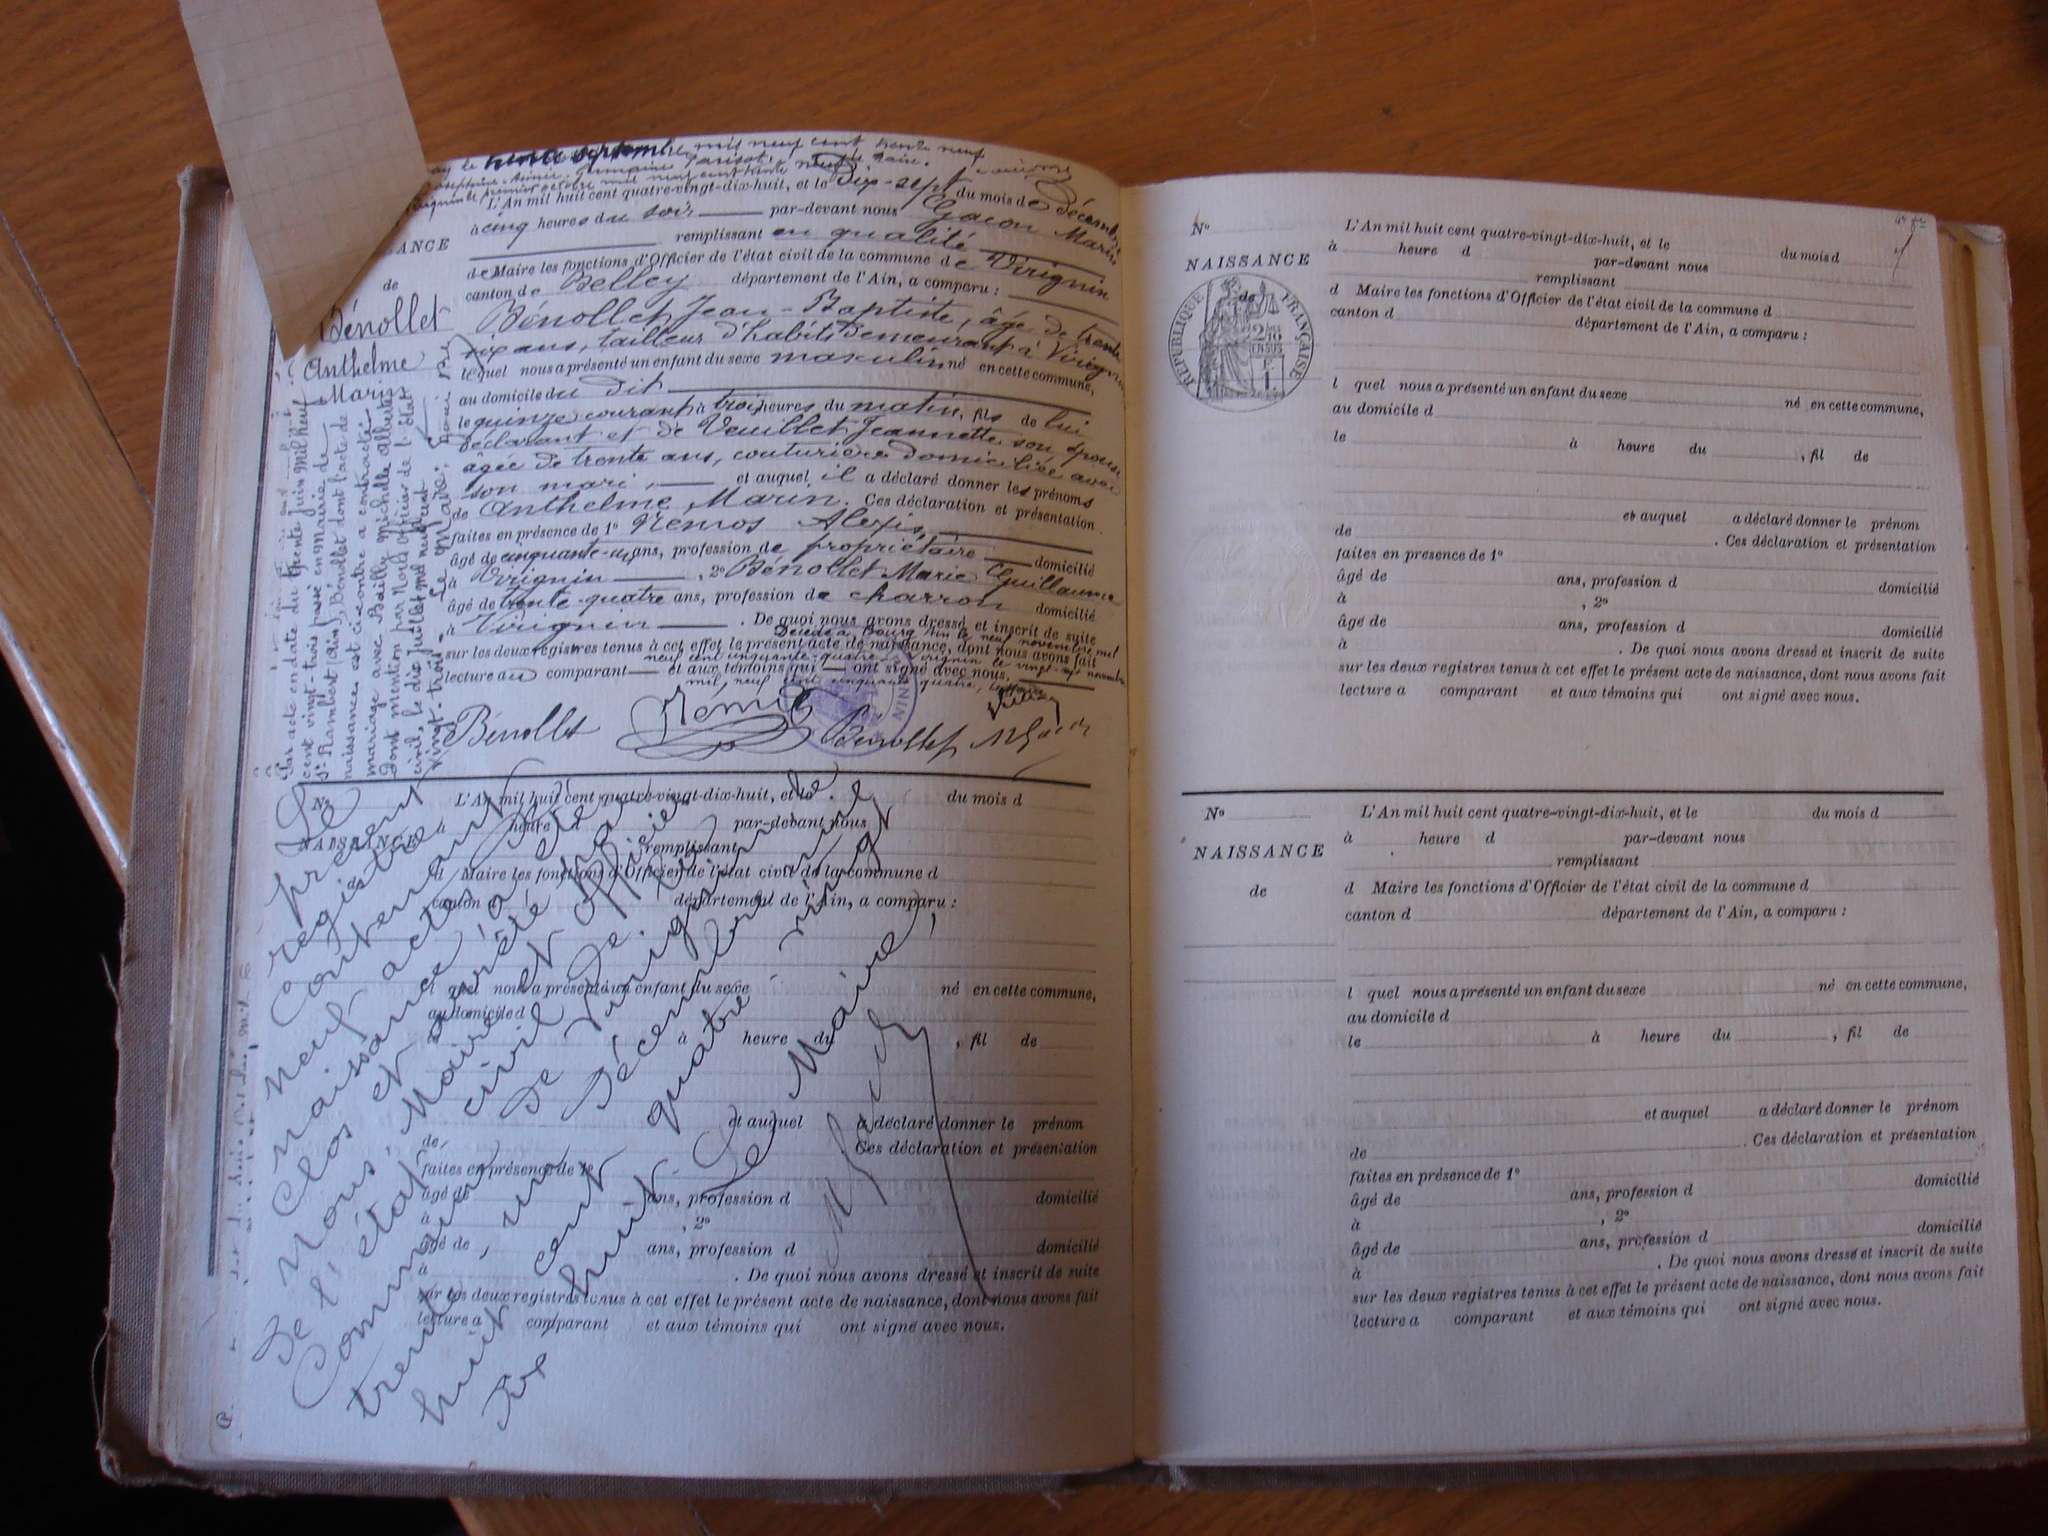 septembre mil neuf cent trente neuf
L'An mil huit cent quatre-vingt-dix-huit, et le Dix-sept du mois de décembre
à cinq heures du soir par-devant nous Gacon Marin
remplissant en qualité
de Maire les fonctions d'Officier de l'état civil de la commune de Virignin
canton de Belley département de l'Ain, a comparu :
Bénollet Jean-Baptiste, âgé de trente
six ans, tailleur d'habits Demeurant à Virignin
lequel nous a présenté un enfant du sexe masculin né en cette commune,
au domicile du dit
le quinze courant à trois heures du matin, fils de lui
déclarant et de Veuillet Jeannette son épouse
âgée de trente ans, couturière domiciliée avec
son mari, et auquel il a déclaré donner les prénoms
de Anthelme Marin. Ces déclaration et présentation
faites en présence de 1° Alexis,
âgé de cinquante-un ans, profession de propriétaire domicilié
à Virignin, 2° Bénollet Marie Guillaume
âgé de trente-quatre ans, profession de charron domicilié
à Virignin. De quoi nous avons dressé et inscrit de suite
sur les deux registres tenus à cet effet le présent acte de naissance, dont nous avons fait
lecture au comparant et aux témoins qui ont signé avec nous.
Décédé à Bourg Ain le neuf novembre mil
neuf cent cinquante-quatre Virignin le vingt novembre
mil neuf cent cinquante quatre
Bénollet
Bénollet
NAISSANCE
de
Bénollet
Anthelme
Marin
Par acte en date du trente juin mil neuf
cent vingt-trois passé en Mairie de
St Rambert (Ain), Bénollet dont l'acte de
naissance est ci-contre a contracté
mariage avec Bailly Michelle Albertine
Dont mention par Nous officier de l'état
civil, le dix juillet mil neuf cent
vingt-trois. Le Maire :
N°
NAISSANCE
de
L'An mil huit cent quatre-vingt-dix-huit, et le du mois d
à heure d par-devant nous
remplissant
d Maire les fonctions d'Officier de l'état civil de la commune d
canton d département de l'Ain, a comparu :
l quel nous a présenté un enfant du sexe né en cette commune,
au domicile d
à heure du , fil de
et auquel a déclaré donner le prénom
de Ces déclaration et présentation
faites en présence de 1°
âgé de ans, profession d domicilié
à , 2°
âgé de ans, profession d domicilié
à . De quoi nous avons dressé et inscrit de suite
sur les deux registres tenus à cet effet le présent acte de naissance, dont nous avons fait
lecture a comparant et aux témoins qui ont signé avec nous.
Le présent
registre
Contenant
neuf actes De
naissance a été
Clos et arrêté par
Nous, Maire et Officier
De l'état civil De la
Commune De Virignin le
trente, un Décembre mil
huit cent quatre vingt
Dix huit.
Le Maire,
N°
NAISSANCE
de
RÉPUBLIQUE FRANÇAISE
L'An mil huit cent quatre-vingt-dix-huit, et le du mois d
à heure d par-devant nous
remplissant
d Maire les fonctions d'Officier de l'état civil de la commune d
canton d département de l'Ain, a comparu :
l quel nous a présenté un enfant du sexe né en cette commune,
au domicile d
le à heure du , fil de
et auquel a déclaré donner le prénom
de . Ces déclaration et présentation
faites en présence de 1°
âgé de ans, profession d domicilié
à , 2°
âgé de ans, profession d domicilié
à . De quoi nous avons dressé et inscrit de suite
sur les deux registres tenus à cet effet le présent acte de naissance, dont nous avons fait
lecture a comparant et aux témoins qui ont signé avec nous.
N°
NAISSANCE
de
L'An mil huit cent quatre-vingt-dix-huit, et le du mois d
à heure d par-devant nous
remplissant
d Maire les fonctions d'Officier de l'état civil de la commune d
canton d département de l'Ain, a comparu :
l quel nous a présenté un enfant du sexe né en cette commune,
au domicile d
le à heure du , fil de
et auquel a déclaré donner le prénom
de . Ces déclaration et présentation
faites en présence de 1°
âgé de ans, profession d domicilié
à , 2°
âgé de ans, profession d domicilié
à . De quoi nous avons dressé et inscrit de suite
sur les deux registres tenus à cet effet le présent acte de naissance, dont nous avons fait
lecture a comparant et aux témoins qui ont signé avec nous.